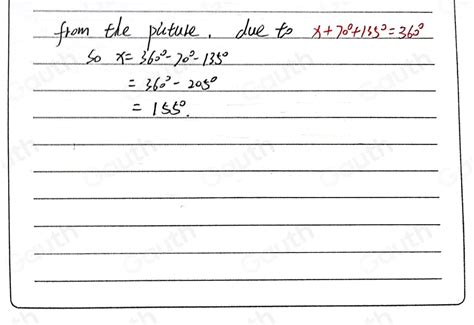 from the picture, due to x+70°+135°=360°
So x=360°-70°-135°
=360°-205°
=155°.